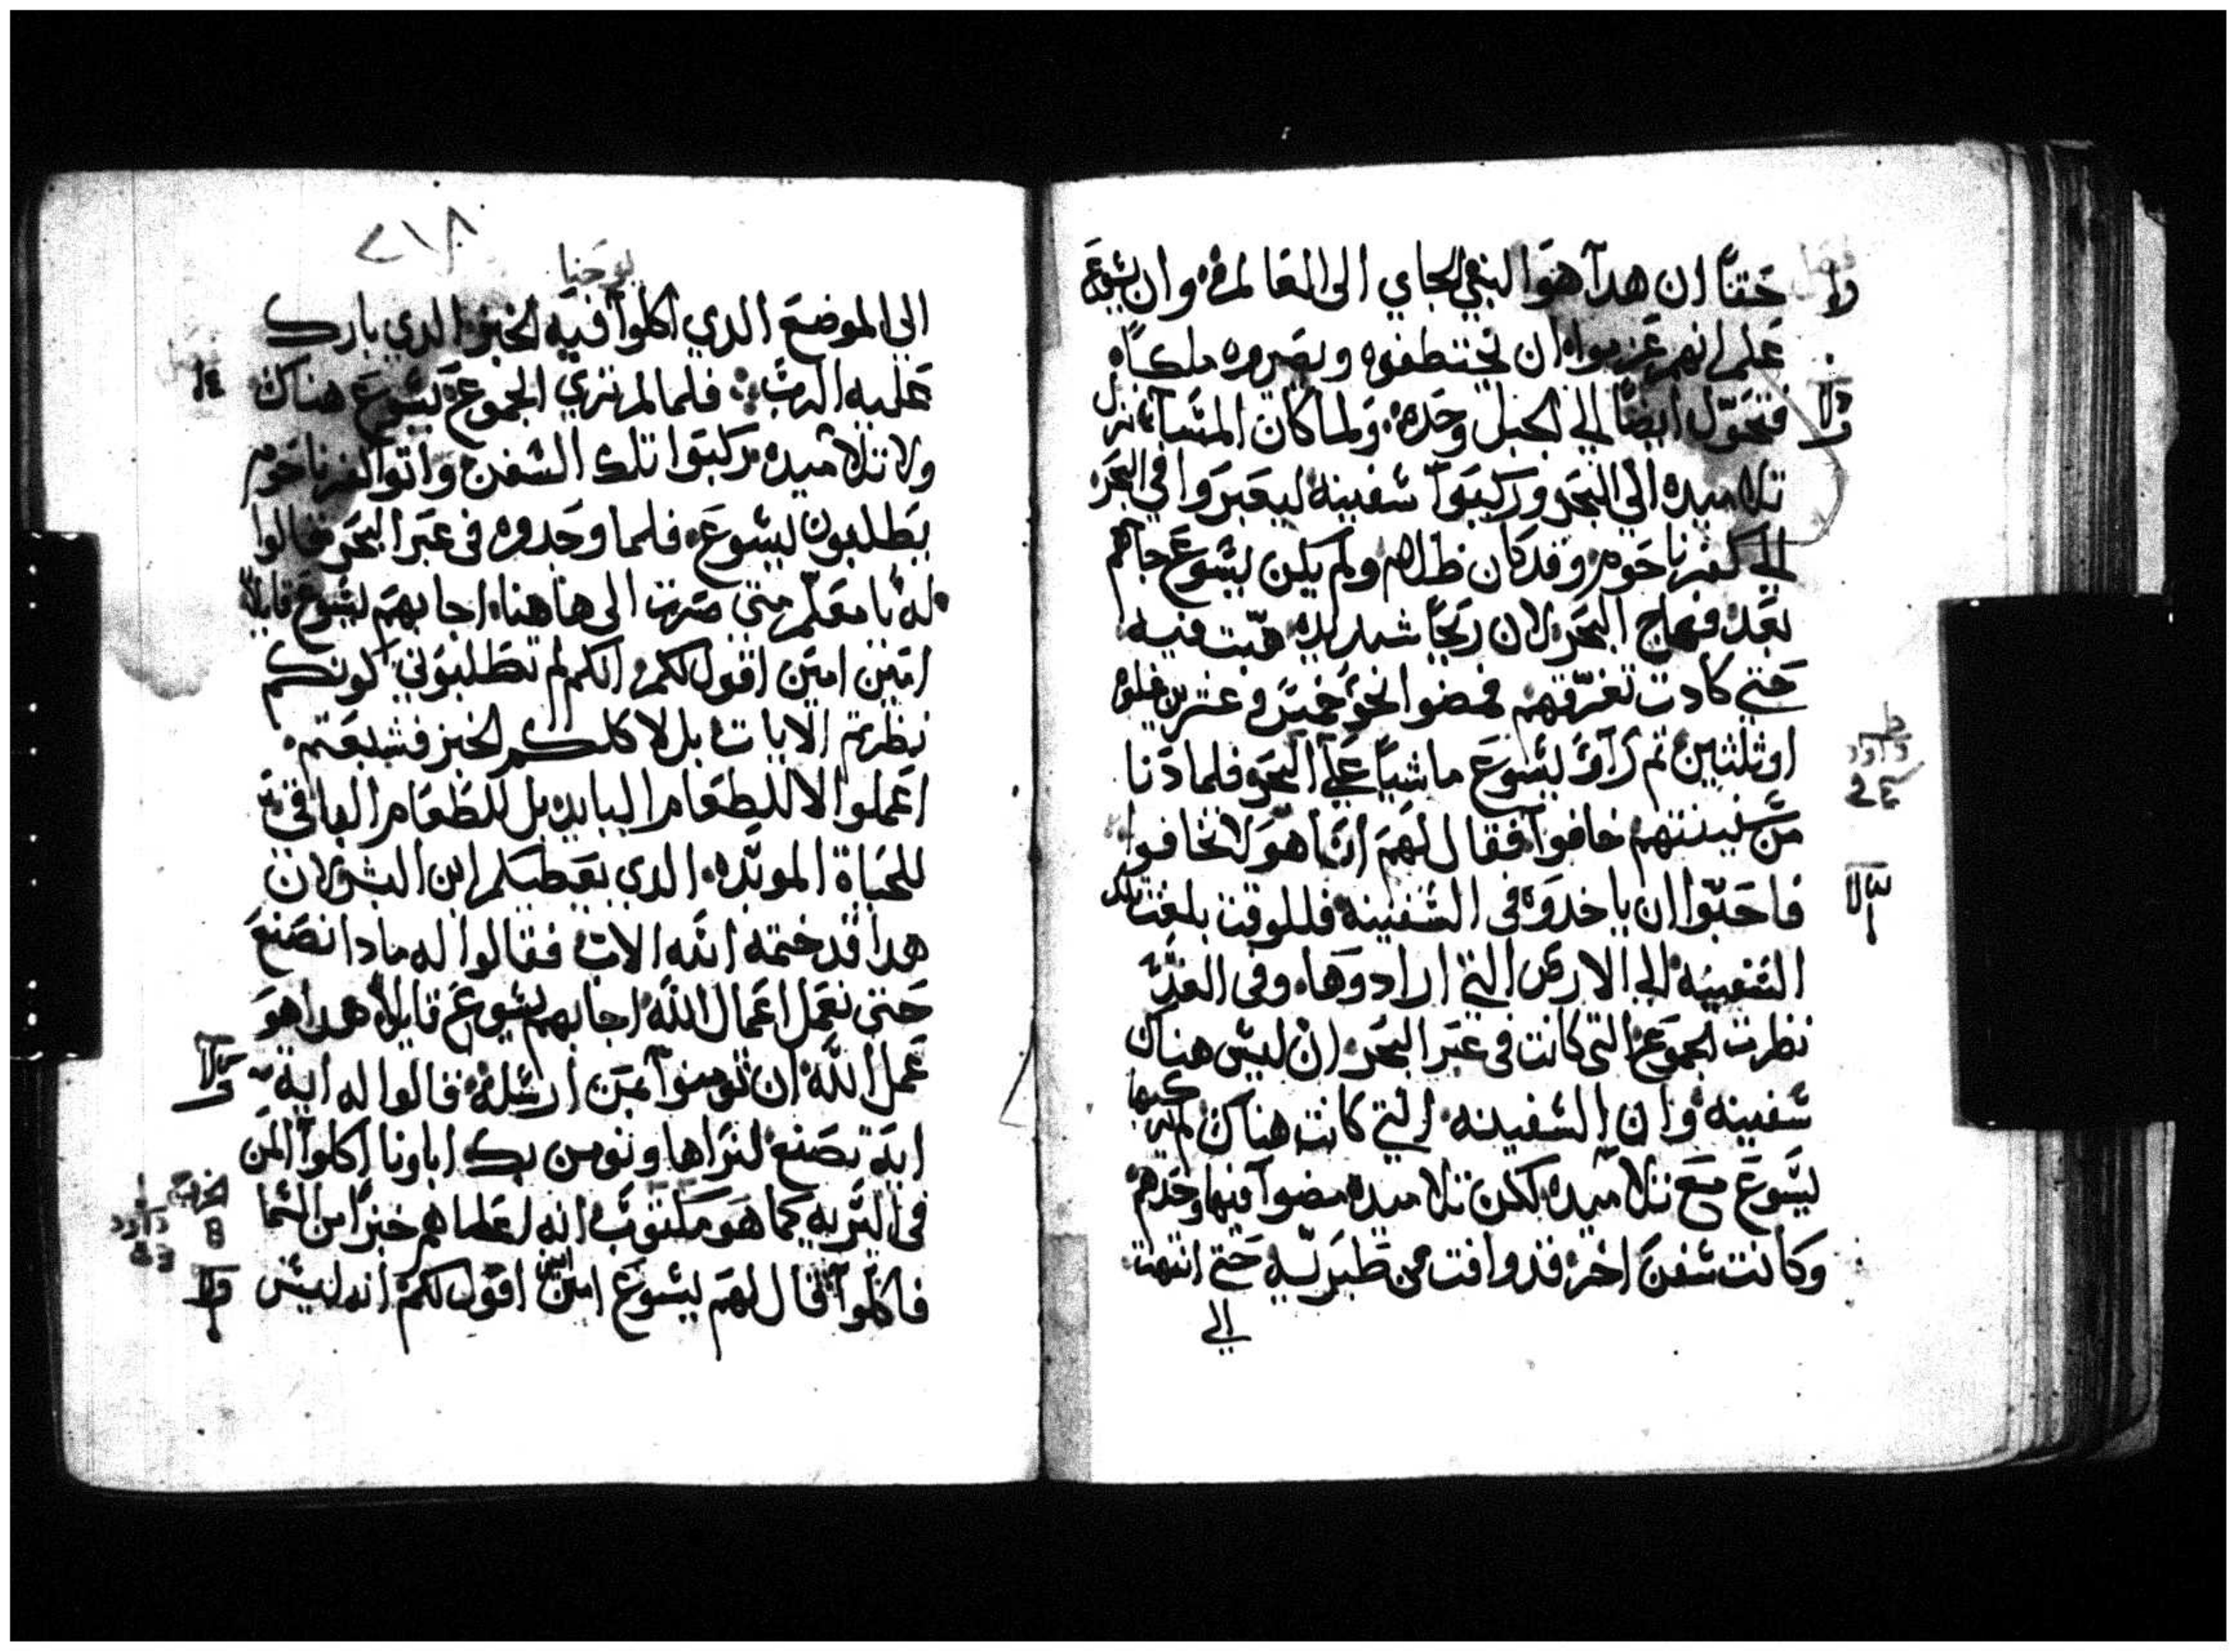 حقًا ان هدا هو النبي الجاي الى العالم وان يشوع
علم انهم عزموا ان يختطفوه ويصيروه ملكًا
فتحول ايضًا الي الجبل وحده ولما كان المشا نزل
تلاميده الي البحر وركبوا شفينه ليعبروا في البحر
الي كفرناحوم وقد كان ظلام ولم يكن يشوع جاهم
بعد فهاج البحر لان ريحًا شديده هبت فيه
حتي كادت تغرقهم فمضوا نحو خمشه وعشرين غلوه
او ثلثين ثم راو يشوع ماشيًا علي البحر فلما دنا
من شفينتهم خافوا فقال لهم انما هو لا تخافوا
فاحبوا ان ياخدوه في الشفينه فللوقت بلغت تلك
الشفينه الي الارض التي ارادوها وفي الغد
نظرت الجموع التي كانت في عبر البحر ان ليش هناك
شفينه وان الشفينه التي كانت هناك لم يركبها
يشوع مع تلاميده لكن تلاميده مضوا فيها وحدهم
وكانت شفن اخر قد وافت من طبريه حتي انتهت
الي
٢١٨
يوحنا
الي الموضع الدي اكلوا فيه الخبز الدي بارك
عليه الرب فلما لم تري الجموع يشوع هناك
ولا تلاميده ركبوا تلك الشفن واتوا كفرناحوم
يطلبون يشوع فلما وجدوه في عبر البحر فقالوا
له يا معلم متي صرت الى هاهنا اجابهم يشوع قايلاً
امين امين اقول لكم انكم لم تطلبوني لكونكم
نظرتم الايات بل لاكلكم الخبز فشبعتم
اعملوا لا للطعام البايد بل للطعام الباقي
للحياة الموبده الدي يعطيكم ابن البشر لان
هدا قد ختمه الله الاب فقالوا له مادا نصنع
حتي نعمل اعمال الله اجابهم يشوع قايلاً هدا هو
عمل الله ان تومنوا بمن ارشله قالوا له اية
اية تصنع لنراها ونومن بك اباونا اكلوا المن
في البريه كما هو مكتوب انه اعطاهم خبزًا من الشما
فاكلوا فقال لهم يشوع امين امين اقول لكم انه ليش